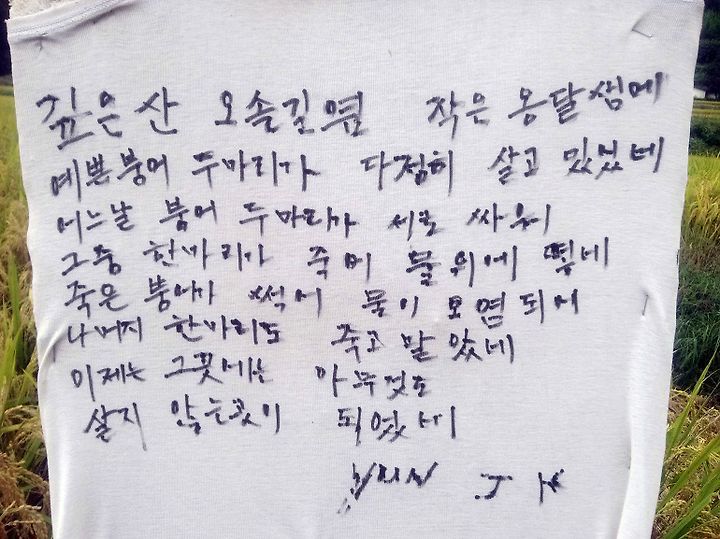 깊은산 오솔길옆 작은 옹달샘에
예쁜붕어 두마리가 다정히 살고 있었네
어느날 붕어 두마리가 서로 싸워
그중 한마리가 죽어 물위에 떴네
죽은 붕어가 썩어 물이 오염되어
나머지 한마리도 죽고 말았네
이제는 그곳에는 아무것도
살지 않는곳이 되었네
J K